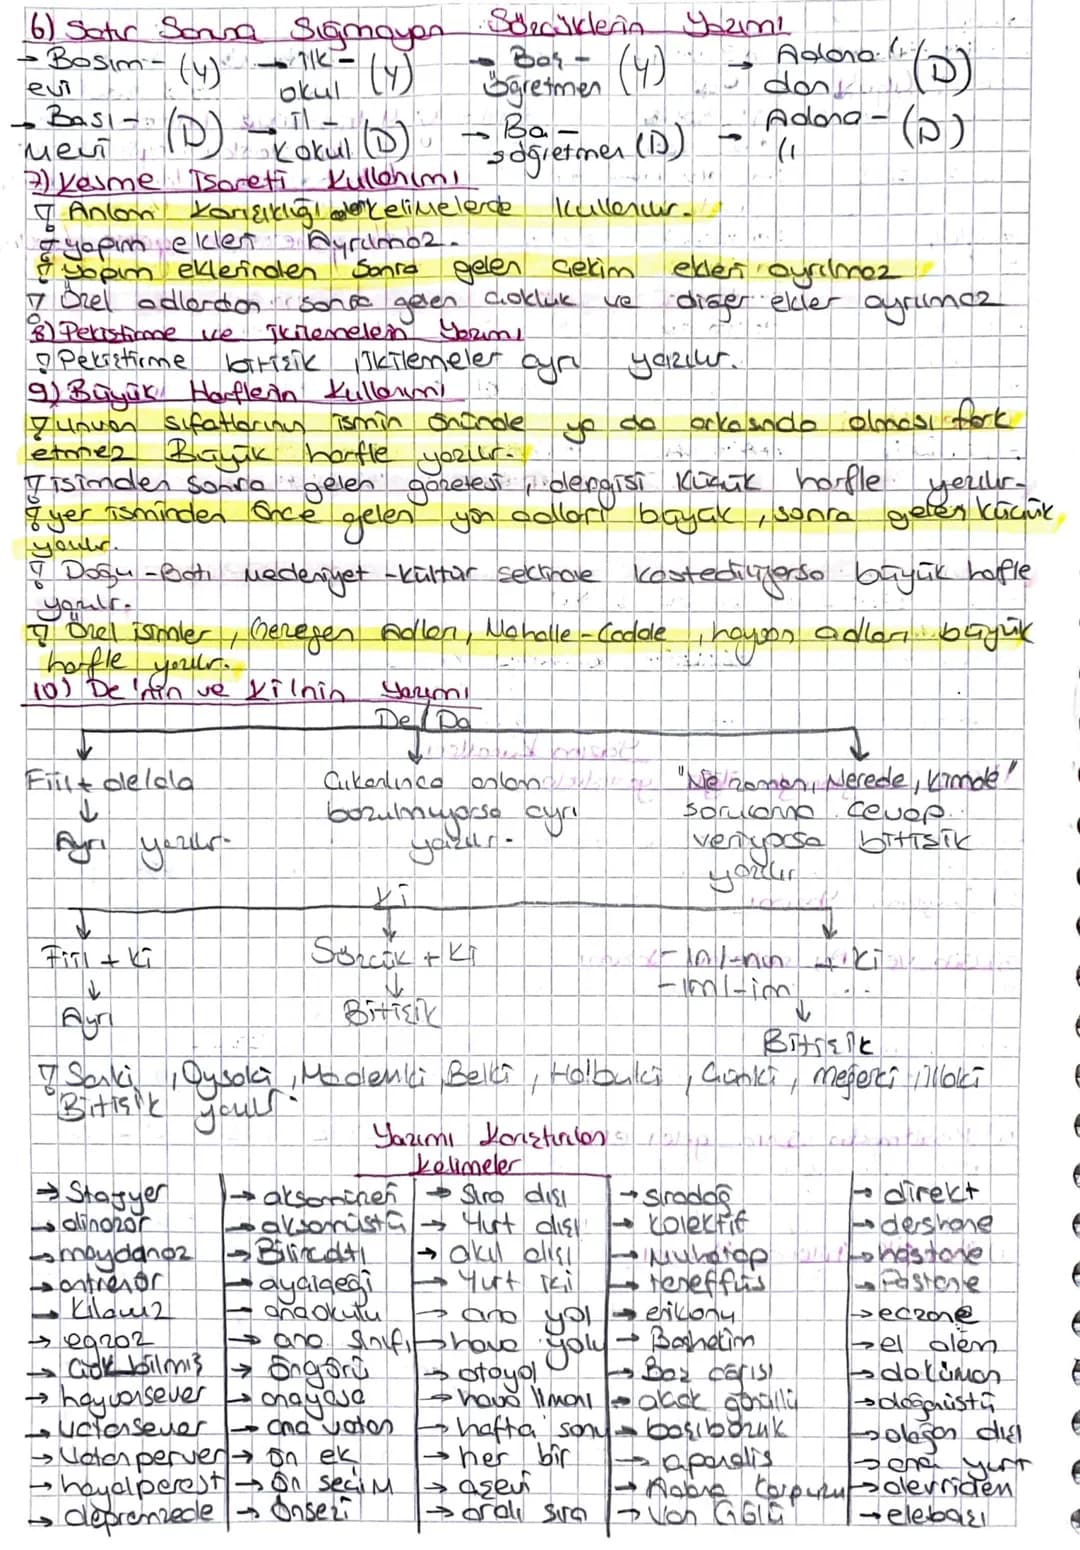 6) Satır Sonuna Sığmayan Sözcüklerin Yazımı
→ Basım- (Y) → ilk- (Y) → Baş- (Y) → Adana' (D)
evi okul öğretmen dan
→ Bası- (D) → il- (D) → Ba- → Adana- (D)
mevi kokul şöğretmen (D) "
7) Kesme İşareti Kullanımı
Anlam Karışıklığı kelimelerde kullanılır.
yapım ekleri Ayrılmaz.
yapım eklerinden sonra gelen çekim ekleri ayrılmaz
Özel adlardan sonra gelen çokluk ve diğer ekler ayrılmaz
8) Pekiştirme ve İkilemelerin Yazımı
Pekiştirme bitişik, ikilemeler ayrı yazılır.
9) Büyük Harflerin Kullanımı
unvan sıfatlarının ismin önünde ya da arkasında olması fark
etmez Büyük harfle yazılır.
isimden sonra gelen gazetesi, dergisi küçük harfle yazılır.
yer isminden önce gelen yön adları büyük, sonra gelen küçük
yazılır.
Doğu-Batı medeniyet-kültür şeklinde kastediliyorsa büyük harfle
yazılır.
Özel isimler, Gezegen Adları, Mahalle-Cadde, hayvan adları büyük
harfle yazılır.
10) De'nin ve Ki'nin Yazımı
De/Da
Fiil + de/da Çıkarılınca anlam "Ne zaman, Nerede, Kimde"
↓ bozulmuyorsa ayrı sorularına cevap
Ayrı yazılır. yazılır. veriyorsa bitişik
yazılır
Ki
Fiil + ki Sözcük + ki -ın/-nın + ki
↓ ↓ -ım/-im ↓
Ayrı Bitişik Bitişik
Sanki, Oysaki, Mademki, Belki, Halbuki, Çünkü, meğerki, illaki
Bitişik yazılır.
Yazımı Karıştırılan
Kelimeler
→ Stajyer → akşamüzeri → Sıra dışı → sıradağ → direkt
→ dinozor → akşamüstü → Yurt dışı → kolektif → dershane
→ maydanoz → Bilinçaltı → akıl dışı → Muhatap → hastane
→ antrenör → ayçiçeği → Yurt içi → teneffüs → Pastane
→ Kılavuz → anaokulu → ana yol → erikonu → eczane
→ egzoz → ana sınıfı → hava yolu → Başhekim → el âlem
→ çok bilmiş → öngörü → otoyol → Baş çarşı → doküman
→ hayvansever → anayasa → hava limanı → alçak gönüllü → olağanüstü
→ vatansever → ana vatan → hafta sonu → başıbozuk → olağan dışı
→ Vatanperver → ön ek → her bir → aperatif → ana yurt
→ hayalperest → ön seçim → aşevi → Adana Karpuzu → alevriden
→ depremzede → önsezi → ardı sıra → Van Gölü → elebaşı